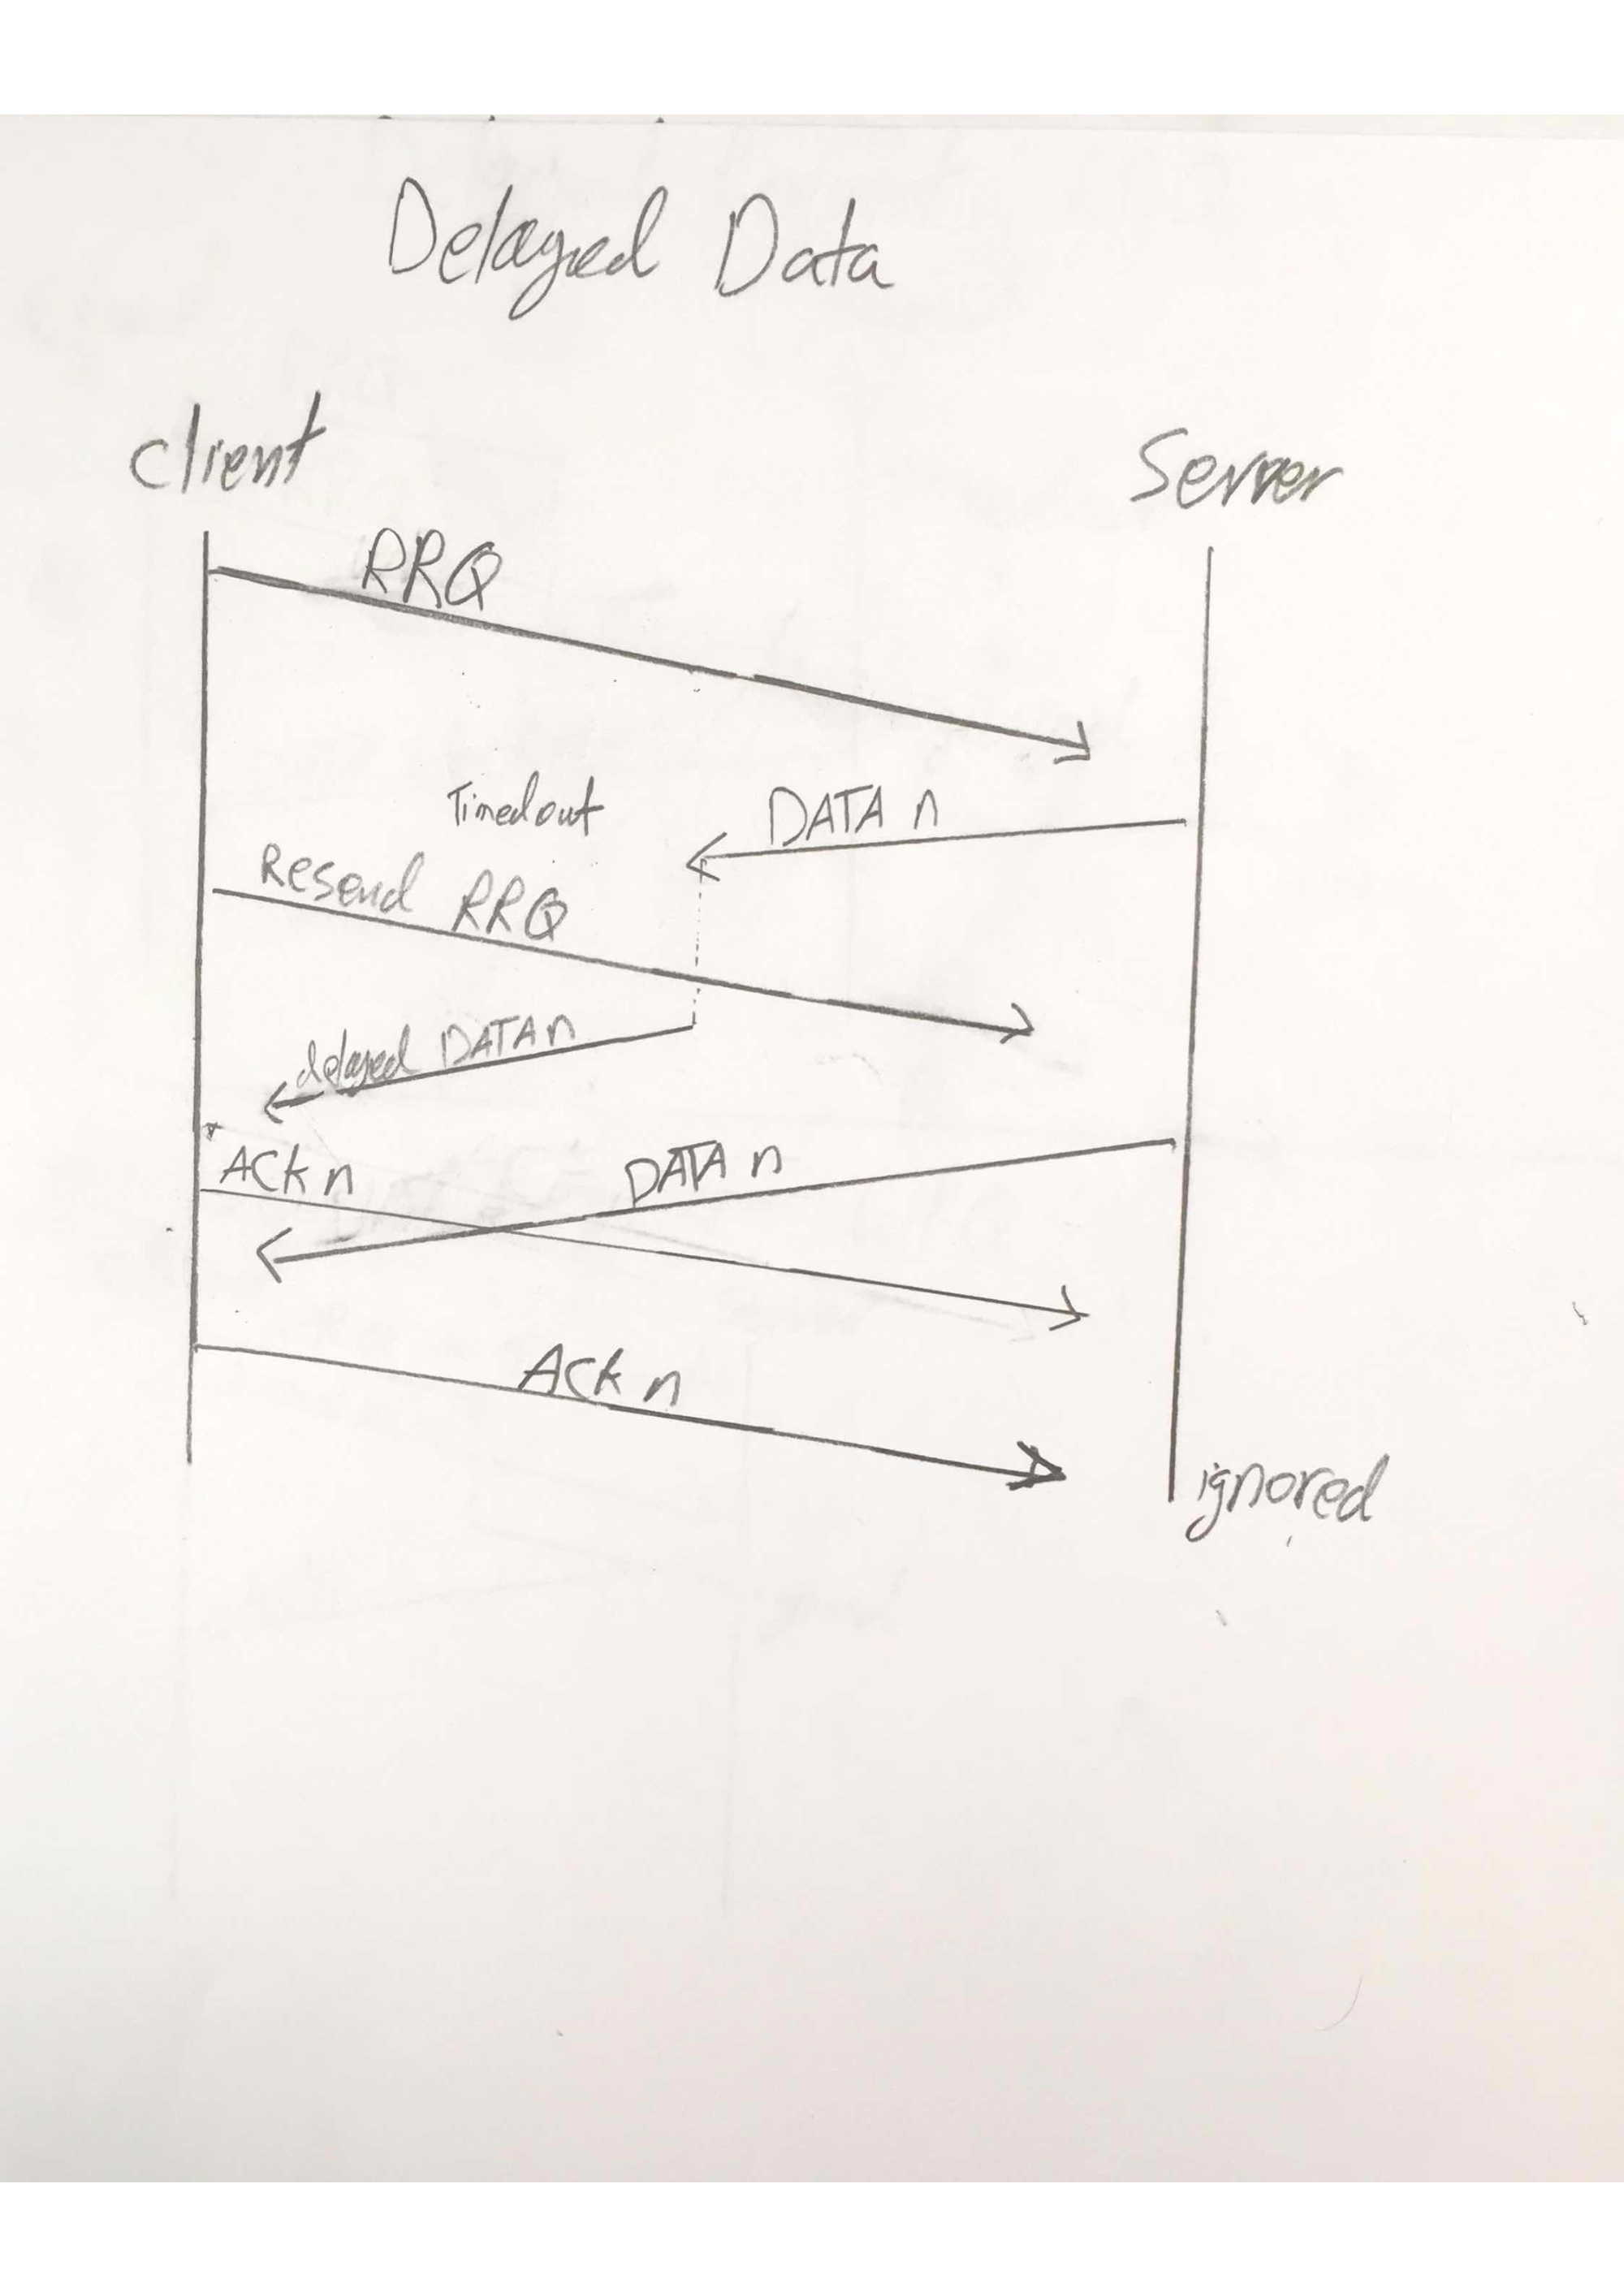 Delayed Data
client
Server
RRQ
Timedout
DATA n
Resend RRQ
delayed DATA n
ACK n
DATA n
ACK n
ignored